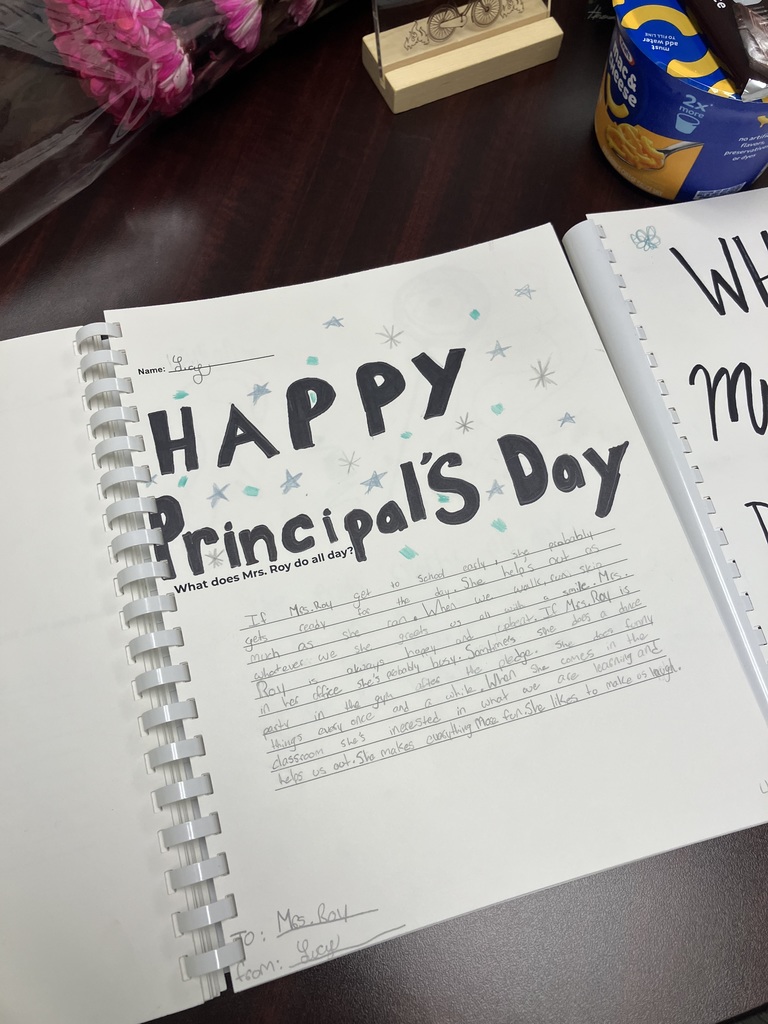 must
add water
TO FILL LINE
Mac &
Cheese
2x*
more
no artificial
flavors,
preservatives
or dyes
Name: Lucy
HAPPY
Principal'S Day
What does Mrs. Roy do all day?
If Mrs. Roy get to school early, she probably
gets ready for the day. She helps out as
much as she can. When we walk, run, skip
whatever we she greats us all with a smile. Mrs.
Roy is always happy and upbeat. If Mrs. Roy is
in her office she's probably busy. Somtimes she does a dance
party in the gym after the pledge. She does funny
things every once and a while. When she comes in the
classroom she's inerested in what we are learning and
helps us out. She makes everything more fun. She likes to make us laugh.
To: Mrs. Roy
from: Lucy
WH